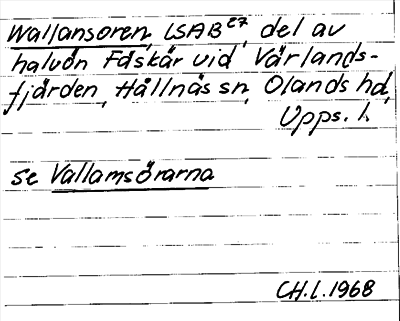 Wallansören, LSAB E7, del av
halvön Fåskär vid Värlands-
fjärden, Hållnäs sn, Olands hd,
Upps. l.
se Vallamsörarna
CH.L.1968